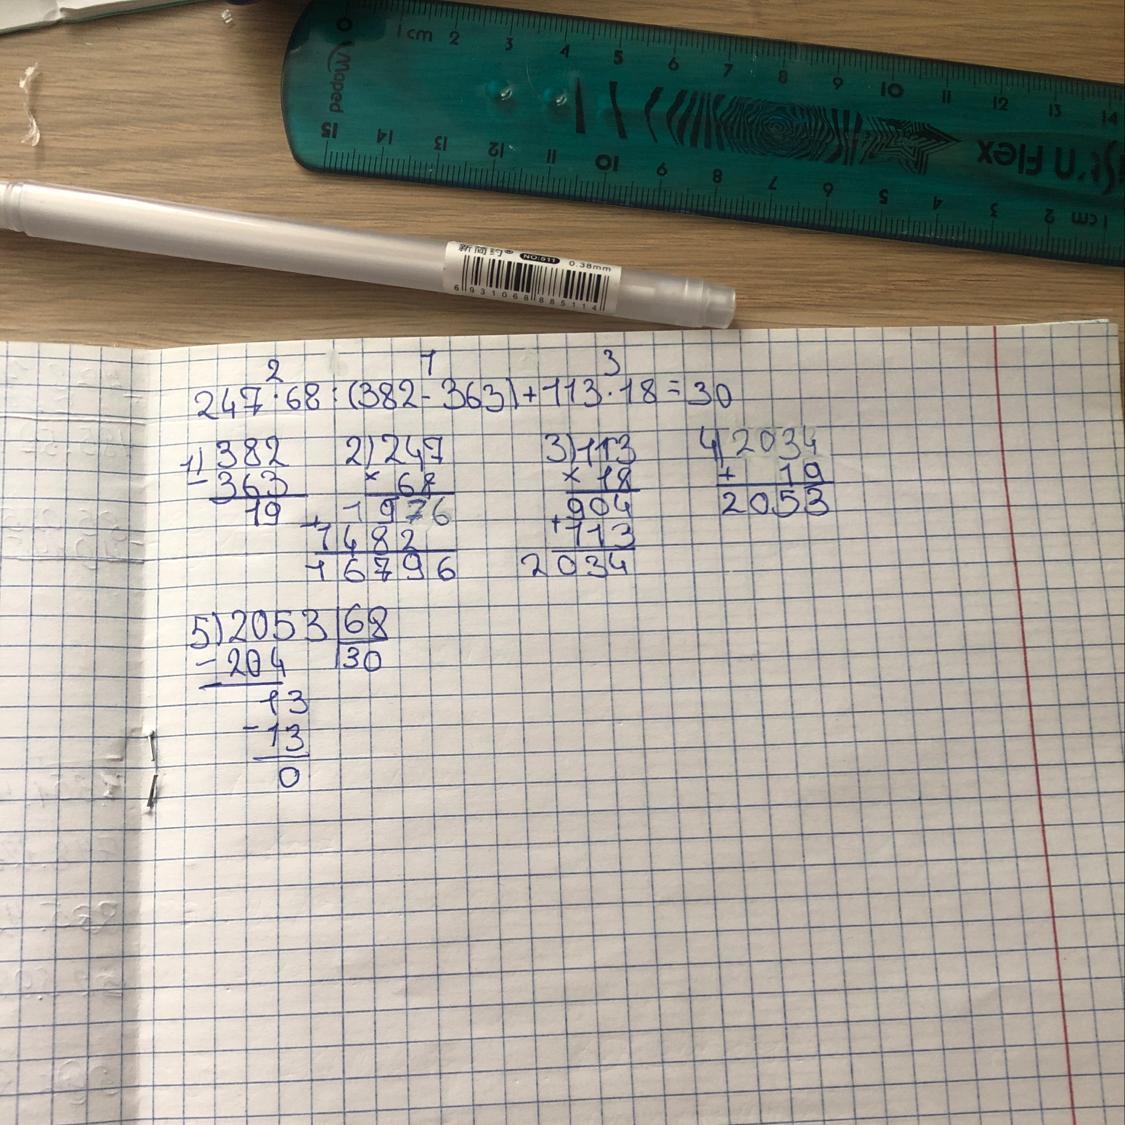 0 1 cm 2 3 4 5 6 7 8 9 10 11 12 13 14
Maped
15 14 13 12 11 10 9 8 7 6 5 4 3 2 1 cm
'n Flex
NO:511 0.38mm
6 931068 885114
2 1 3
247·68:(382-363)+113·18=30
1) 382 2) 247 3) 113 4) 2034
- 363 × 68 × 18 + 19
19 + 1976 904 2053
1482 + 113
16796 2034
5) 2053 | 68
- 204 | 30
13
- 13
0